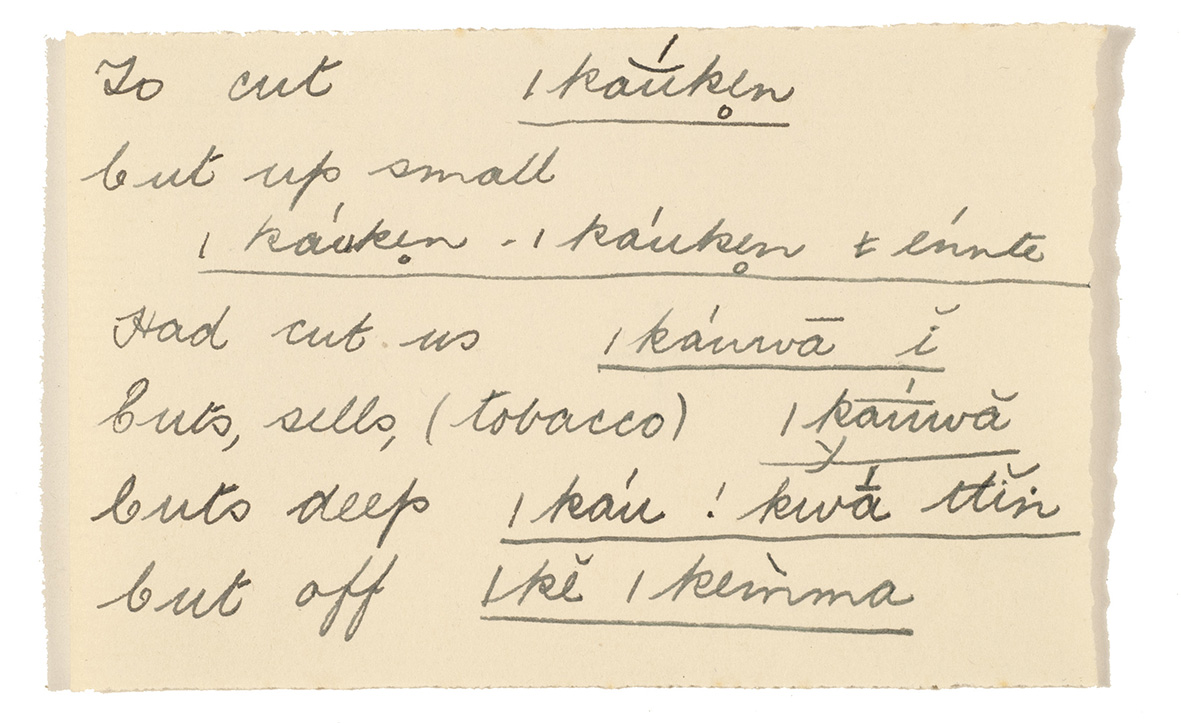 To cut ǀkā́ŭkẹn̥
Cut up small
ǀkáukẹn̥ - ǀkáukẹn̥ ŧ énnte
Had cut us ǀkáuwā ĭ
Cuts, sells, (tobacco) ǀkā́ūwă
Cuts deep ǀkáu !kwā́ ttĭn
Cut off ǀkĕ ǀkem̀ma